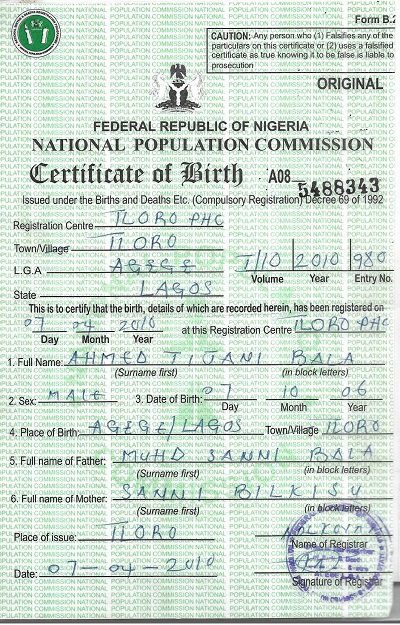 Form B.2
CAUTION: Any person who (1) Falsifies any of the
particulars on this certificate or (2) uses a falsified
certificate as true knowing it to be false is liable to
prosecution
ORIGINAL
FEDERAL REPUBLIC OF NIGERIA
NATIONAL POPULATION COMMISSION
Certificate of Birth A08 5488343
Issued under the Births and Deaths Etc. (Compulsory Registration) Decree 69 of 1992
Registration Centre ILORO PHC
Town/Village ILORO
L.G.A AGEGE I/10 2010 980
Volume Year Entry No.
State LAGOS
This is to certify that the birth, details of which are recorded herein, has been registered on
07 04 2010 at this Registration Centre ILORO PHC
Day Month Year
1. Full Name: AHMED TIJANI BALA
(Surname first) (in block letters)
2. Sex: MALE 3. Date of Birth: 07 10 06
Day Month Year
4. Place of Birth: AGEGE/LAGOS Town/Village ILORO
5. Full name of Father: MUHD SANNI BALA
(Surname first) (in block letters)
6. Full name of Mother: SANNI BILKISU
(Surname first) (in block letters)
Place of issue: ILORO
Name of Registrar
Date: 07-04-2010
Signature of Registrar